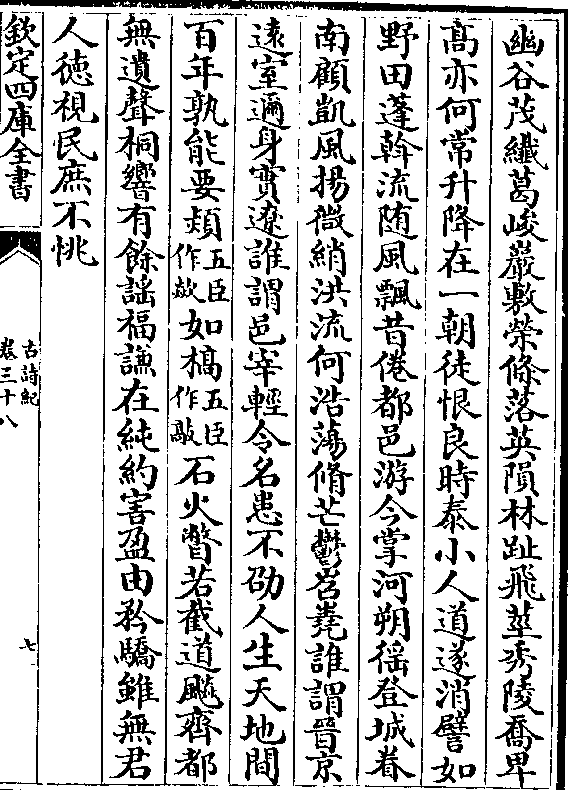 幽谷茂纖葛峻巖敷榮條落英隕林趾飛莖秀陵喬卑
髙亦何常升降在一朝徒恨良時泰小人道遂消譬如
野田蓬斡流随風飄昔倦都邑游今掌河朔徭登城眷
南顧凱風揚微綃洪流何浩蕩脩芒鬱岧嶤誰謂晉京
逺室邇身實遼誰謂邑宰輕令名患不劭人生天地間
百年孰能要熲五臣作歘如槁五臣作敲石火瞥若截道飈齊都
無遺聲桐響有餘謡福謙在純約害盈由矜驕雖無君
人徳視民庶不恌
欽定四庫全書
古詩紀
卷三十八
七